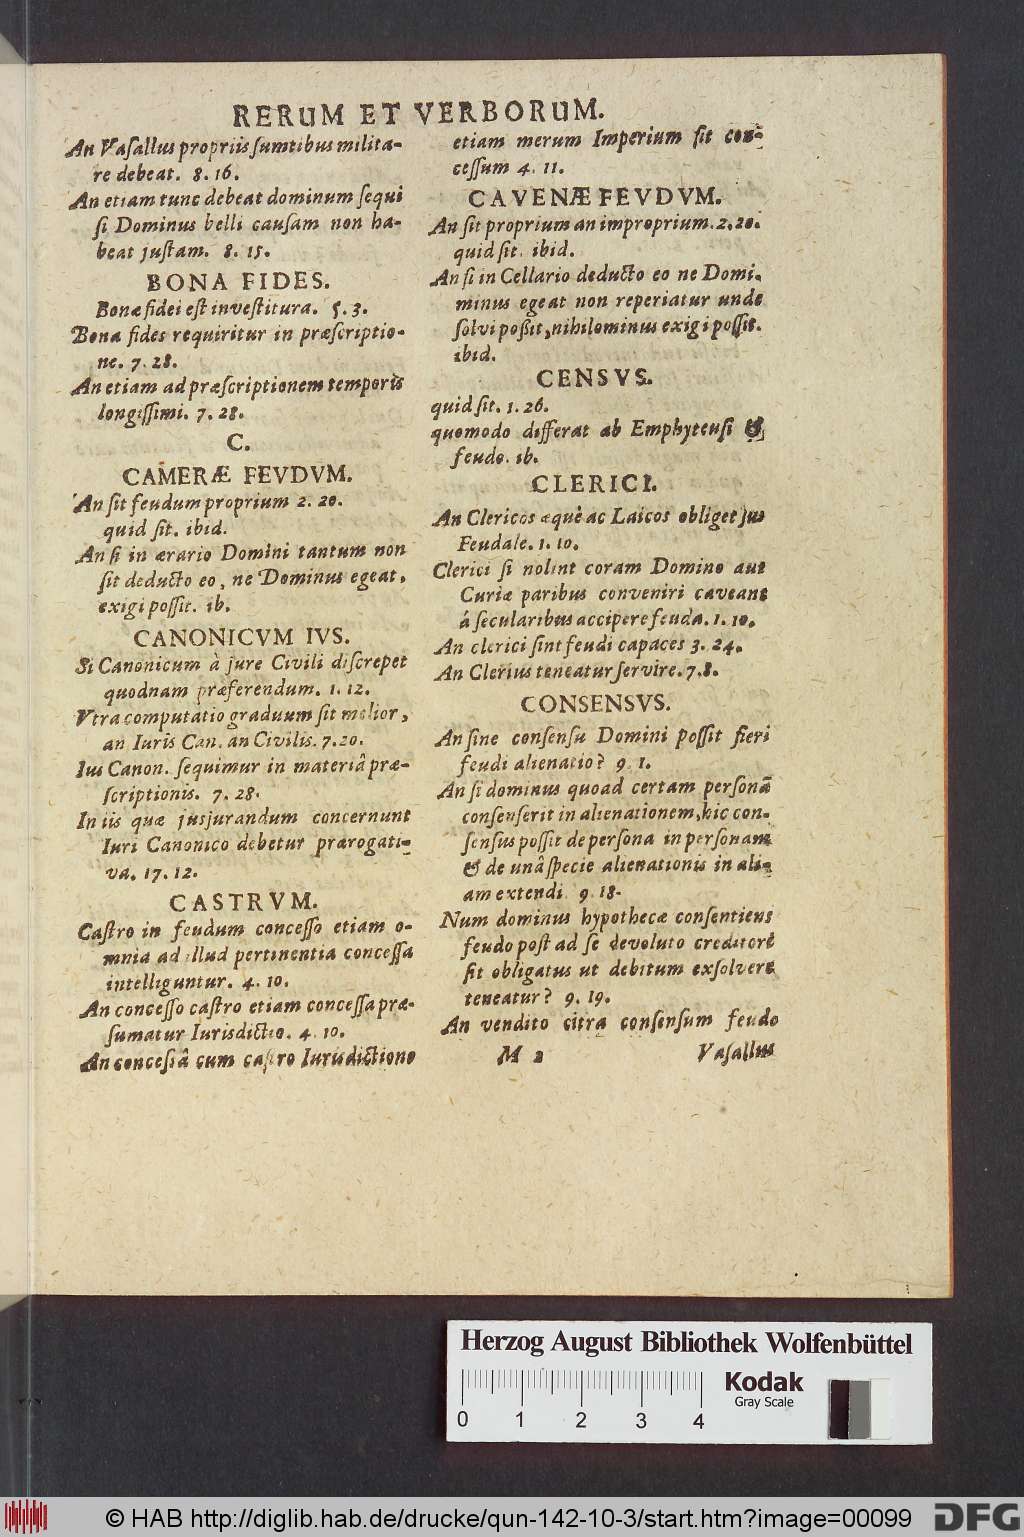 RERUM ET VERBORUM.
An Vaſallus propriis ſumtibus milita-
re debeat. 8. 16.
An etiam tunc debeat dominum ſequi
ſi Dominus belli cauſam non ha-
beat juſtam. 8. 15.
BONA FIDES.
Bonæ fidei eſt inveſtitura. 5. 3.
Bona fides requiritur in præſcriptio-
ne. 7. 28.
An etiam ad præſcriptionem temporis
longiſſimi. 7. 28.
C.
CAMERÆ FEVDVM.
An ſit feudum proprium 2. 20.
quid ſit. ibid.
An ſi in ærario Domini tantum non
ſit deducto eo, ne Dominus egeat,
exigi poſſit. ib.
CANONICVM IVS.
Si Canonicum à jure Civili diſcrepet
quodnam præferendum. 1. 12.
Vtra computatio graduum ſit melior,
an Iuris Can. an Civilis. 7. 20.
Ius Canon. ſequimur in materiâ præ-
ſcriptionis. 7. 28.
In iis quæ jusjurandum concernunt
Iuri Canonico debetur prærogati-
va. 17. 12.
CASTRVM.
Caſtro in feudum conceſſo etiam o-
mnia ad illud pertinentia conceſſa
intelliguntur. 4. 10.
An conceſſo caſtro etiam conceſſa præ-
ſumatur Iurisdictio. 4. 10.
An conceſſâ cum caſtro Iurisdictione
etiam merum Imperium ſit con-
ceſſum 4. 11.
CAVENÆ FEVDVM.
An ſit proprium an improprium. 2. 20.
quid ſit. ibid.
An ſi in Cellario deducto eo ne Domi-
minus egeat non reperiatur unde
ſolvi poßit, nihilominus exigi poſſit.
ibid.
CENSVS.
quid ſit. 1. 26.
quomodo differat ab Emphyteuſi &
feudo. ib.
CLERICI.
An Clericos æquè ac Laicos obliget jus
Feudale. 1. 10.
Clerici ſi nolint coram Domino aut
Curiæ paribus conveniri caveant
á ſecularibus accipere feuda. 1. 10.
An clerici ſint feudi capaces 3. 24.
An Clerius teneatur ſervire. 7. 8.
CONSENSVS.
An ſine conſenſu Domini poſſit fieri
feudi alienatio? 9. 1.
An ſi dominus quoad certam perſonã
conſenſerit in alienationem, hic con-
ſenſus poſſit de perſona in perſonam
& de unâ ſpecie alienationis in ali-
am extendi. 9. 18.
Num dominus hypothecæ conſentiens
feudo poſt ad ſe devoluto creditori
ſit obligatus ut debitum exſolvere
teneatur? 9. 19.
An vendito citra conſenſum feudo
M 2 Vaſallus
Herzog August Bibliothek Wolfenbüttel
0 1 2 3 4
Kodak
Gray Scale
© HAB http://diglib.hab.de/drucke/qun-142-10-3/start.htm?image=00099
DFG